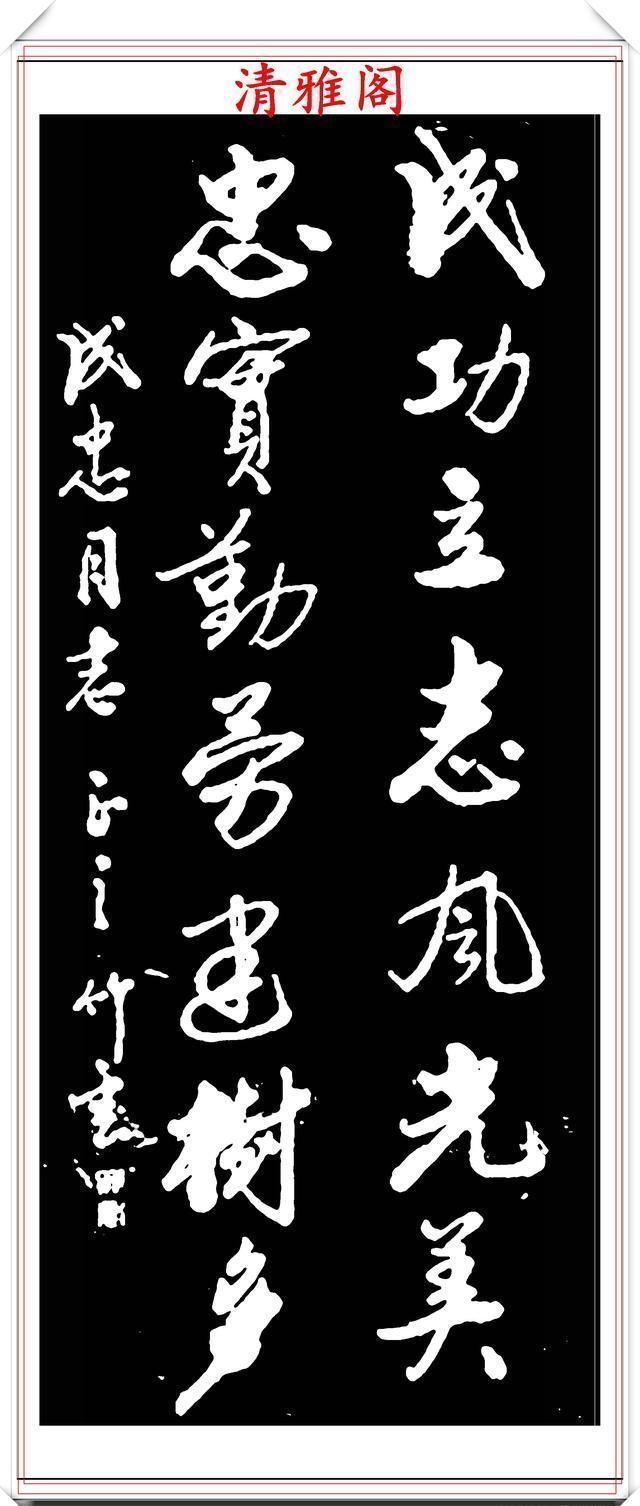 清雅阁
成功立志风光美
忠實勤劳建樹多
成忠同志正之竹虚